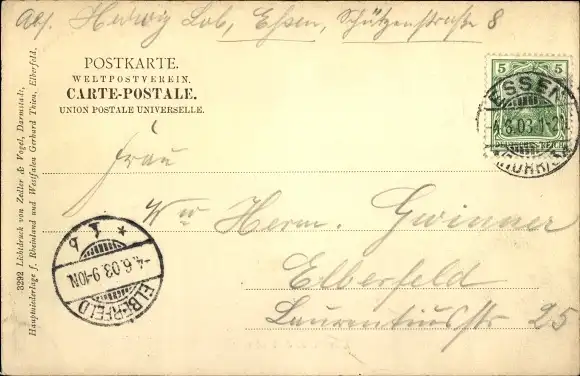 Abs. Hedwig Lob, Essen, Schützenstraße 8
POSTKARTE.
WELTPOSTVEREIN.
CARTE-POSTALE.
UNION POSTALE UNIVERSELLE.
5 5
ESSEN
4.6.03.1-2N
(RUHR)
Frau
Ww Herm. Gwinner
Elberfeld
Laurentiusstr 25
ELBERFELD
-4.6.03.9-10N.
* 1 b
3292 Lichtdruck von Zedler & Vogel, Darmstadt,
Hauptniederlage f. Rheinland und Westfalen Gerhard Thien, Elberfeld.